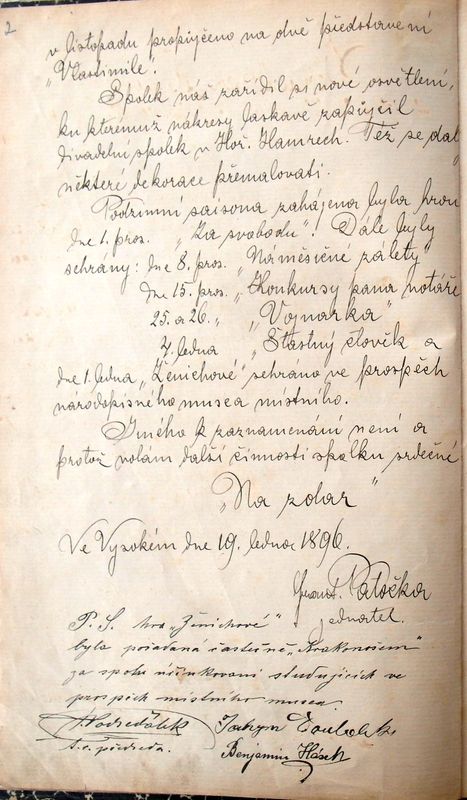 2
v listopadu propůjčeno na dvě představení
„Vlastimile".
Spolek náš zařídil si nové osvětlení,
ku kteremuž nákresy laskavě zapůjčil
divadelní spolek v Hoř. Hamrech. Též se dal
některé dekorace přemalovati.
Podzimní saisona zahájena byla hrou
dne 1. pros. „Za svobodu". Dále byly
sehrány: dne 8. pros. „Náměsíčné zálety"
dne 15. pros. „Konkursy pana notáře
25. a 26. „ „Vojnarka"
4. ledna „Šťastný člověk a
dne 1. ledna „Ženichové" sehráno ve prospěch
národopisného musea místního.
Jiného k zaznamenání není a
protož volám další činnosti spolku srdečné
„Na zdar"
Ve Vysokém dne 19. ledna 1896.
Frant. Patočka
jednatel.
P. S. hra „Ženichové"
byla pořádaná částečně „Krakonošem"
za spolu účinkovaní studujících ve
prospěch místního musea.
t. č. předseda.
Benjamin Hásek